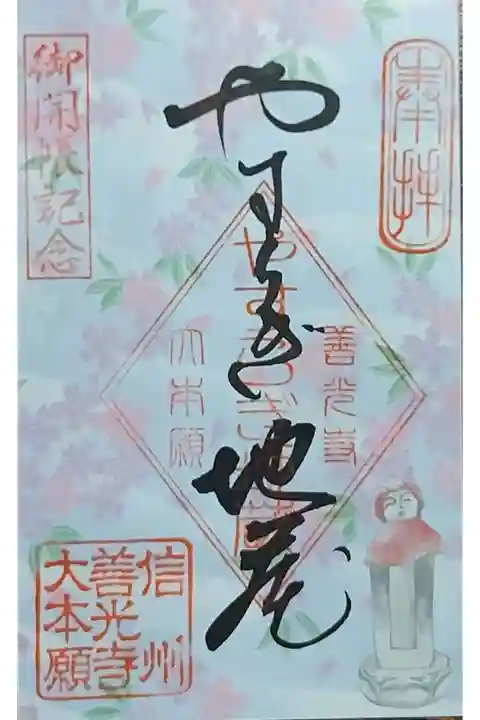 奉拝
善光寺
やすらぎ地蔵
やすらぎ地蔵
大本願
御開帳記念
信州
善光寺
大本願